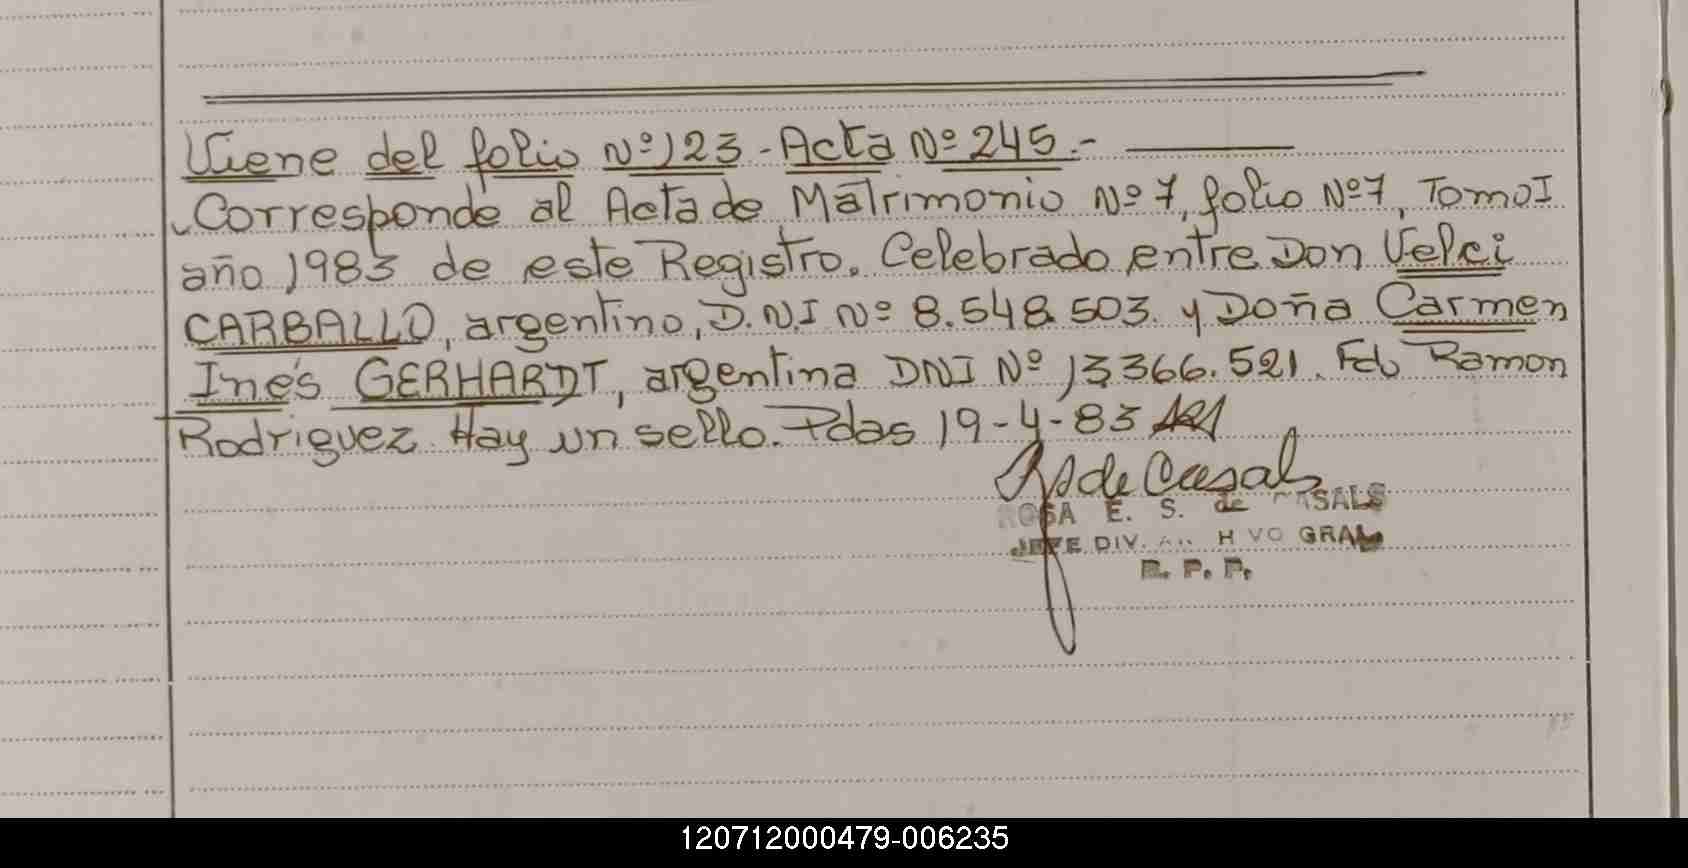 Viene del folio Nº 123 - Acta Nº 245.-
Corresponde al Acta de Matrimonio Nº 7, folio Nº 7, Tomo I
año 1983 de este Registro. Celebrado entre Don Velci
CARBALLO, argentino, D.N.I Nº 8.548.503. y Doña Carmen
Inés GERHARDT, argentina DNI Nº 13366.521. Fdo Ramon
Rodriguez. Hay un sello. Pdas 19-4-83
RS de Casals
ROSA E. S. de CASALS
JEFE DIV. ARCHIVO GRAL
R. P. P.
120712000479-006235